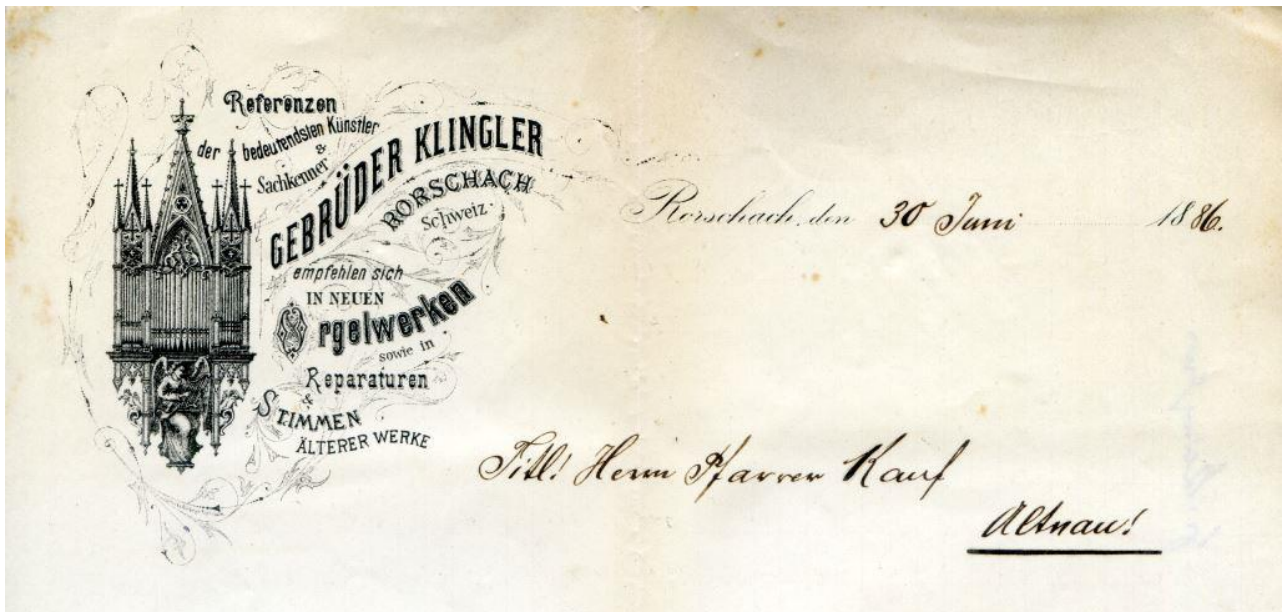 Referenzen
der bedeutendsten Künstler
&
Sachkenner
GEBRÜDER KLINGLER
RORSCHACH
Schweiz.
empfehlen sich
IN NEUEN
Orgelwerken
sowie in
Reparaturen
&
STIMMEN
ÄLTERER WERKE
Rorschach, den 30 Juni 1886.
Titl! Herrn Pfarrer Kauf
Altnau!